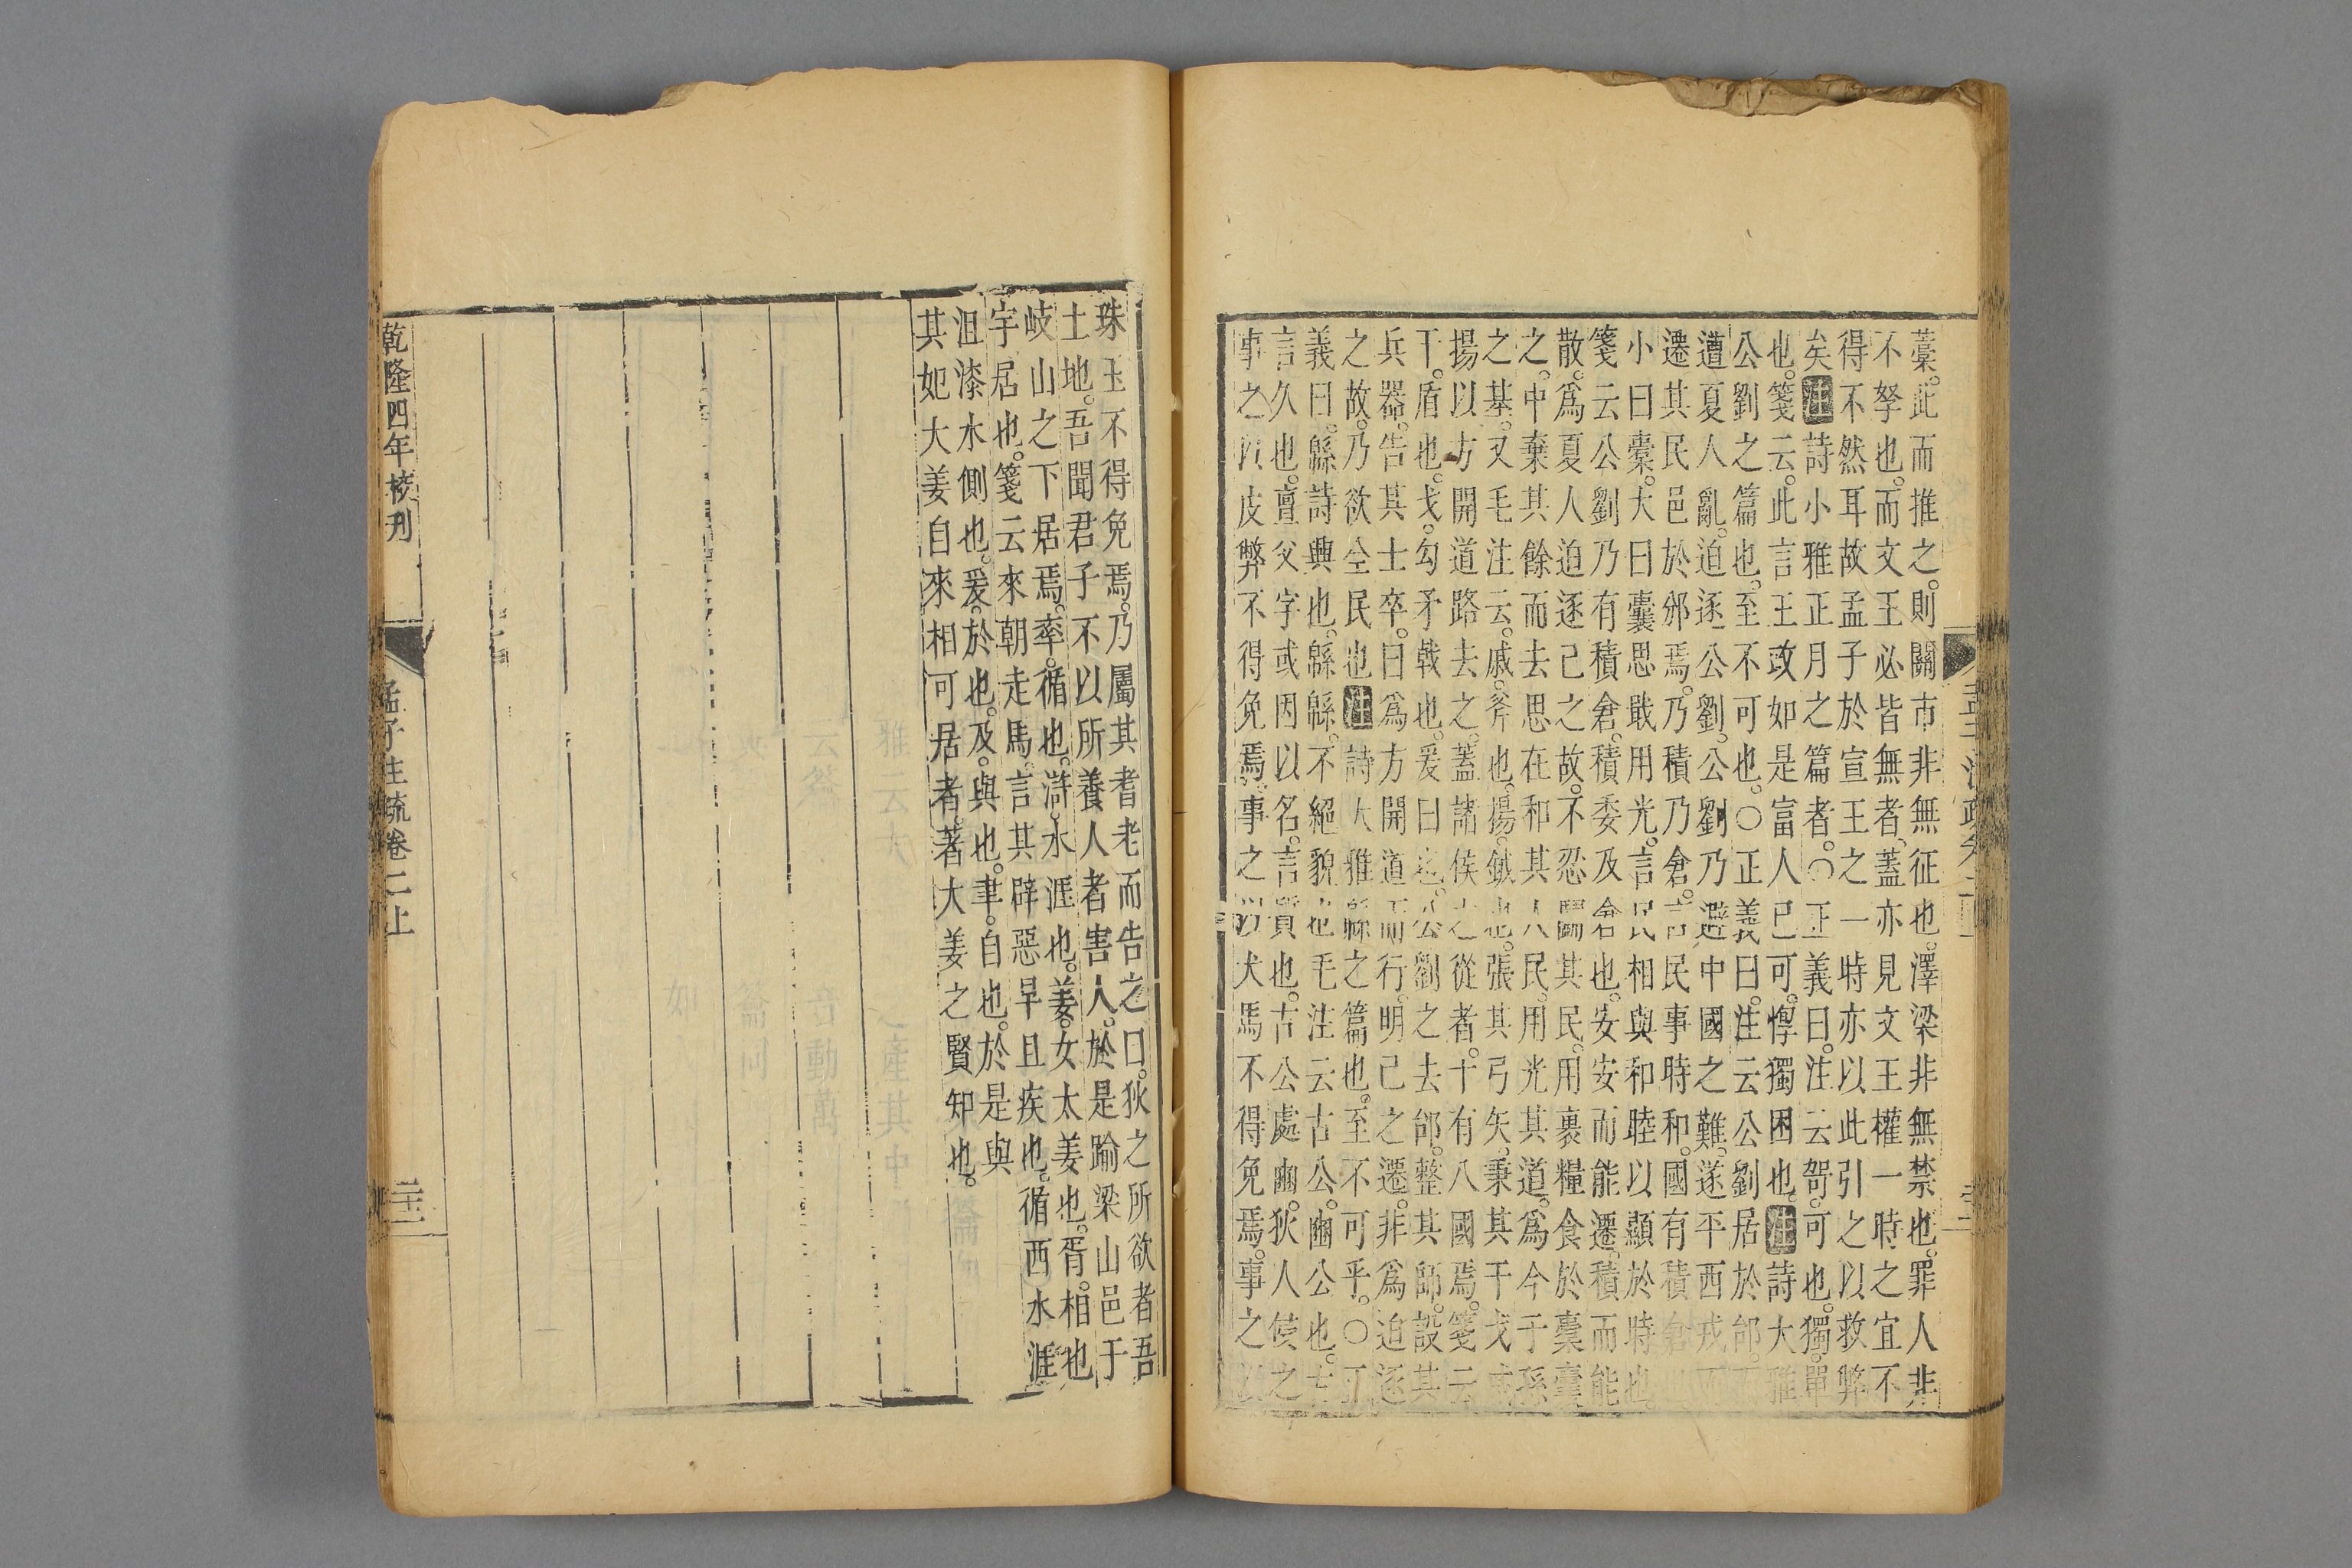 藁此而推之則關市非無征也澤梁非無禁也罪人非
不孥也而文王必皆無者蓋亦見文王權一時之宜不
得不然耳故孟子於宣王之一時亦以此引之以救弊
矣注詩小雅正月之篇者○正義曰注云哿可也獨單
也箋云此言王政如是富人已可惸獨困也注詩大雅
公劉之篇也至不可也○正義曰注云公劉居於邰
遭夏人亂迫逐公劉公劉乃避中國之難遂平西戎而
遷其民邑於邠焉乃積乃倉言民事時和國有積倉
小曰橐大曰囊思戢用光言民相與和睦以顯於時也
箋云公劉乃有積倉積委及倉也安安而能遷積而能
散爲夏人迫逐己之故不忍鬬其民用裹糧食於橐囊
之中棄其餘而去思在和其人民用光其道爲今子孫
之基又毛注云戚斧也揚鉞也張其弓矢秉其干戈戚
揚以方開道路去之蓋諸侯之從者十有八國焉箋云
干盾也戈勾矛戟也爰曰也公劉之去邰整其師設其
兵器告其士卒曰爲方開道而行明己之遷非爲迫逐
之故乃欲全民也注詩大雅緜之篇也至不可乎○正
義曰緜詩興也緜緜不絕貌也毛注云古公豳公也古
言久也亶父字或因以名言質也古公處豳狄人侵之
事之以皮弊不得免焉事之以犬馬不得免焉事之以
珠玉不得免焉乃屬其耆老而告之曰狄之所欲者吾
土地吾聞君子不以所養人者害人於是踰梁山邑于
岐山之下居焉率循也滸水涯也姜女太姜也胥相也
宇居也箋云來朝走馬言其辟惡早且疾也循西水涯
沮漆水側也爰於也及與也聿自也於是與
其妃大姜自來相可居者著大姜之賢知也
乾隆四年校刊
孟子注疏卷二上